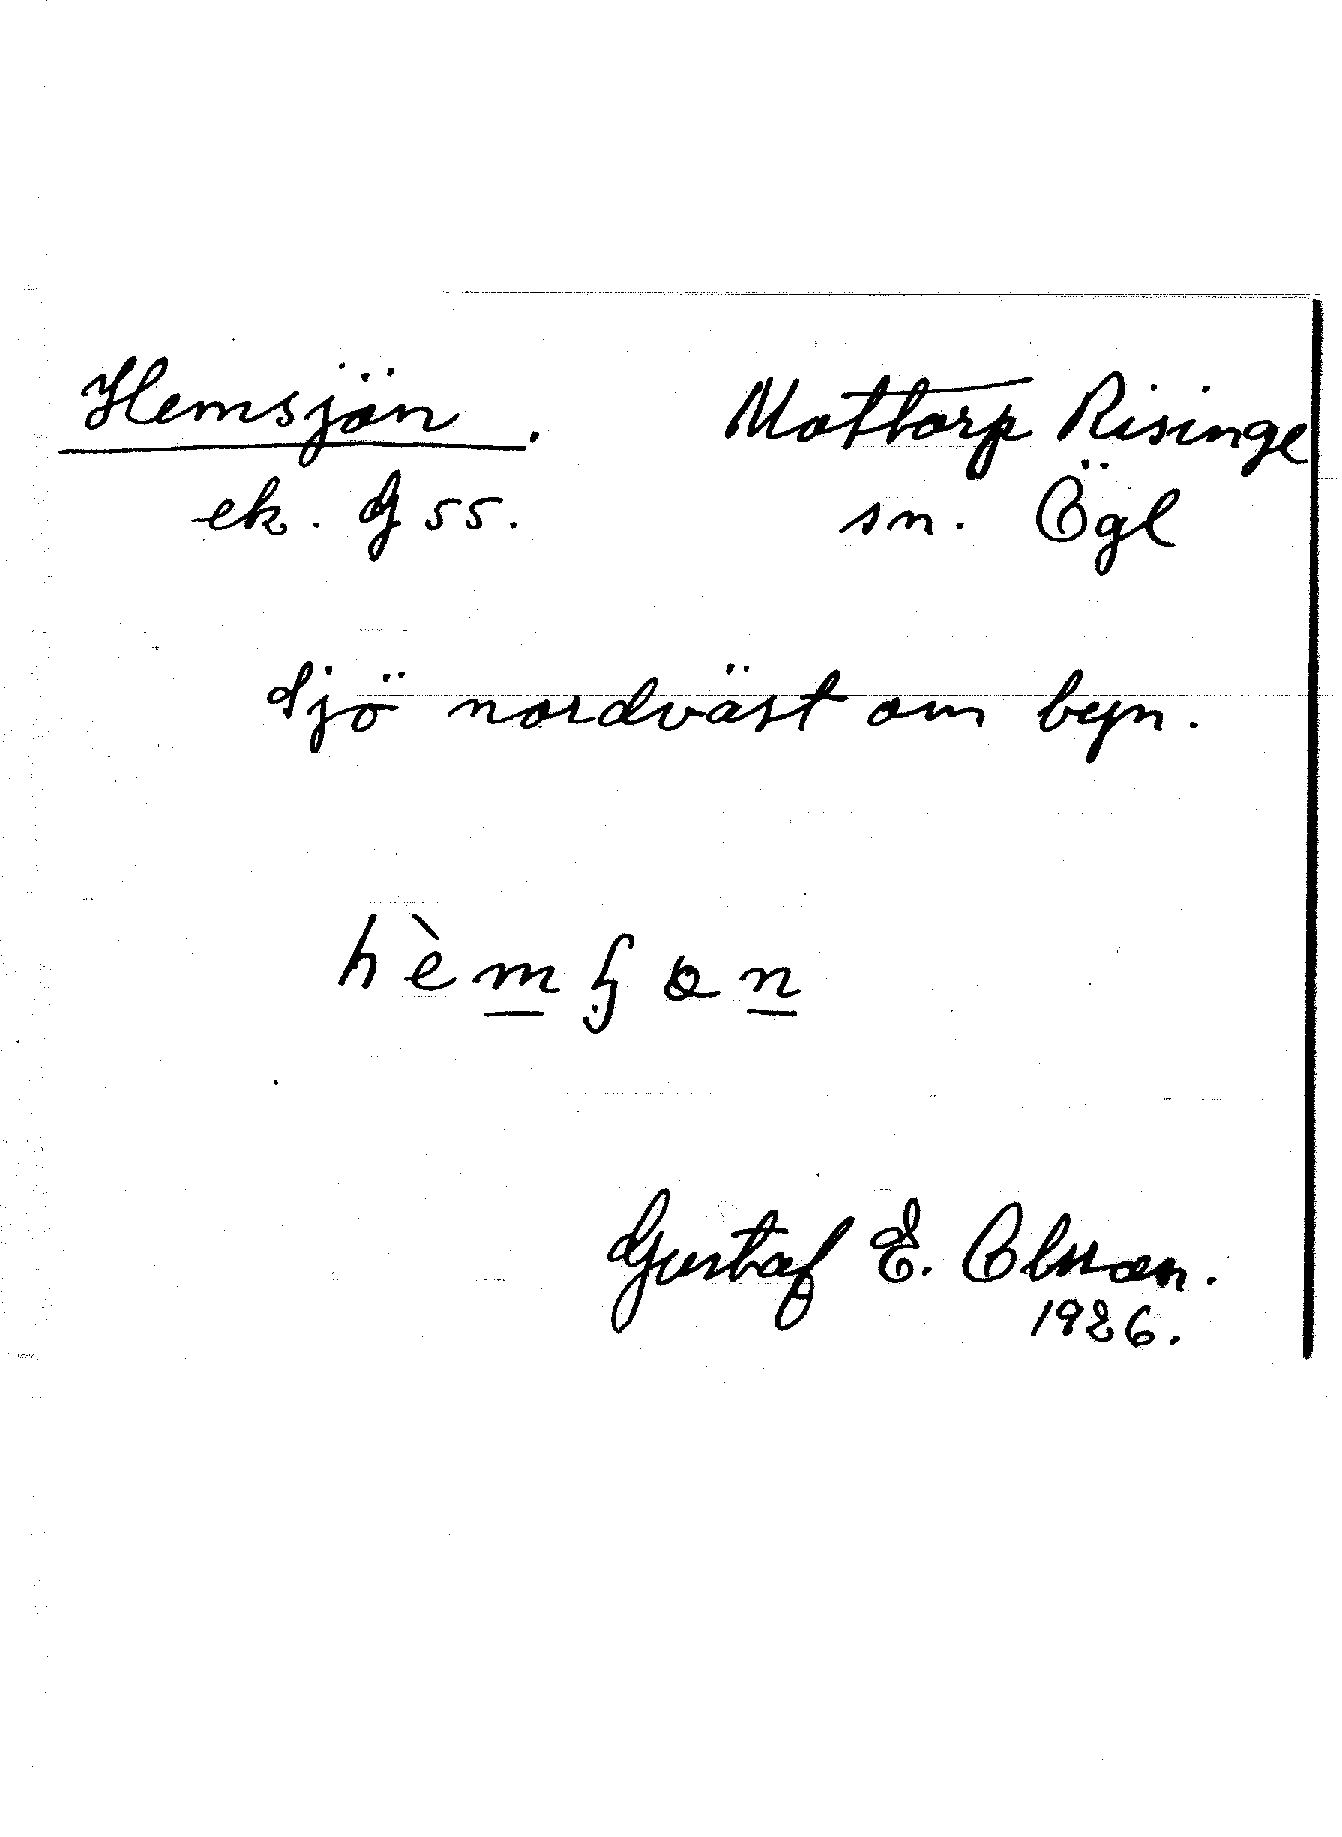 Hemsjön. Mottorp Risinge
ek. G 55. sn. Ögl
Sjö nordväst om byn.
Gustaf E. Olsson.
1926.